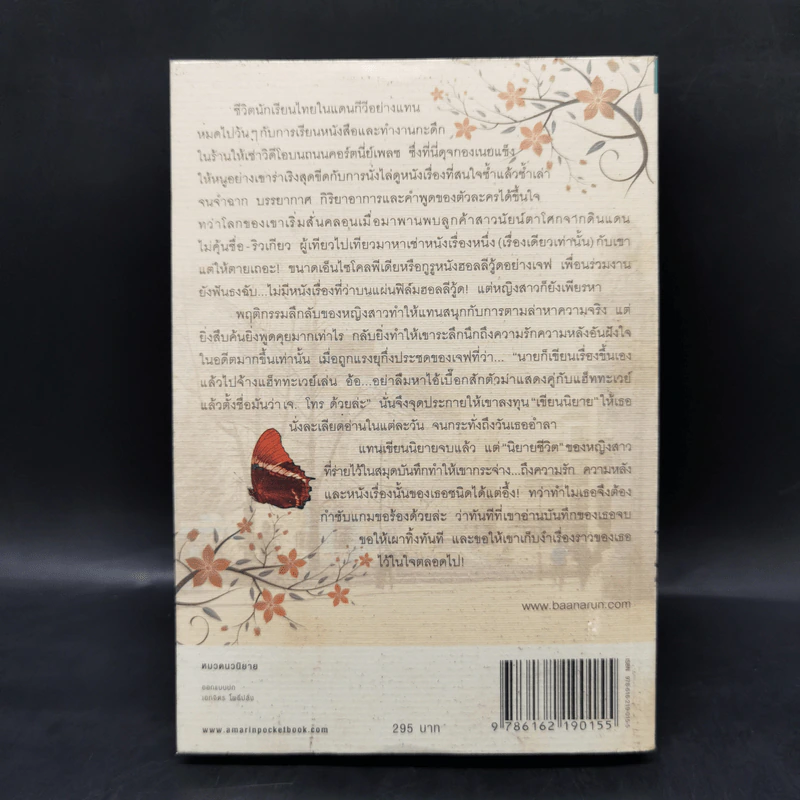 ชีวิตนักเรียนไทยในแดนกีวีอย่างแทน
หมดไปวันๆ กับการเรียนหนังสือและทำงานกะดึก
ในร้านให้เช่าวิดีโอบนถนนคอร์ตนีย์เพลซ ซึ่งที่นี่ดุจกองเนยแข็ง
ให้หนูอย่างเขาร่าเริงสุดขีดกับการนั่งไล่ดูหนังเรื่องที่สนใจซ้ำแล้วซ้ำเล่า
จนจำฉาก บรรยากาศ กิริยาอาการและคำพูดของตัวละครได้ขึ้นใจ
ทว่าโลกของเขาเริ่มสั่นคลอนเมื่อมาพานพบลูกค้าสาวนัยน์ตาโศกจากดินแดน
ไม่คุ้นชื่อ - ริวเกียว ผู้เทียวไปเทียวมาหาเช่าหนังเรื่องหนึ่ง (เรื่องเดียวเท่านั้น) กับเขา
แต่ให้ตายเถอะ! ขนาดเอ็นไซโคลพีเดียหรือกูรูหนังฮอลลีวู้ดอย่างเจฟ เพื่อนร่วมงาน
ยังฟันธงฉับ...ไม่มีหนังเรื่องที่ว่าบนแผ่นฟิล์มฮอลลีวู้ด! แต่หญิงสาวก็ยังเพียรหา
พฤติกรรมลึกลับของหญิงสาวทำให้แทนสนุกกับการตามล่าหาความจริง แต่
ยิ่งสืบค้นยิ่งพูดคุยมากเท่าไร กลับยิ่งทำให้เขาระลึกนึกถึงความรักความหลังอันฝังใจ
ในอดีตมากขึ้นเท่านั้น เมื่อถูกแรงยุกึ่งประชดของเจฟที่ว่า... "นายก็เขียนเรื่องขึ้นเอง
แล้วไปจ้างแฮ็ททะเวย์เล่น อ้อ...อย่าลืมหาไอ้เบื๊อกสักตัวมาแสดงคู่กับแฮ็ททะเวย์
แล้วตั้งชื่อมันว่า เจ. โทร ด้วยล่ะ" นั่นจึงจุดประกายให้เขาลงทุน "เขียนนิยาย" ให้เธอ
นั่งละเลียดอ่านในแต่ละวัน จนกระทั่งถึงวันเธออำลา
แทนเขียนนิยายจบแล้ว แต่ "นิยายชีวิต" ของหญิงสาว
ที่ร่ายไว้ในสมุดบันทึกทำให้เขากระจ่าง...ถึงความรัก ความหลัง
และหนังเรื่องนั้นของเธอชนิดได้แต่อึ้ง! ทว่าทำไมเธอจึงต้อง
กำชับแกมขอร้องด้วยล่ะ ว่าทันทีที่เขาอ่านบันทึกของเธอจบ
ขอให้เผาทิ้งทันที และขอให้เขาเก็บงำเรื่องราวของเธอ
ไว้ในใจตลอดไป!
www.baanarun.com
หมวดนวนิยาย
ออกแบบปก
www.amarinpocketbook.com
295 บาท
9 786162 190155